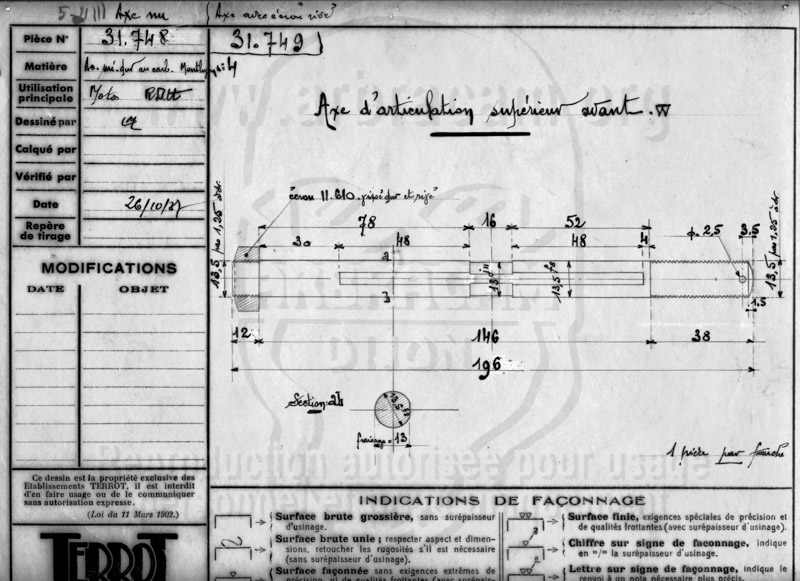 Axe nu
Pièce Nº 31.748 31.749
Matière
Utilisation principale Moto
Dessiné par
Calqué par
Vérifié par
Date 26/10/37
Repère de tirage
MODIFICATIONS
DATE OBJET
Axe d'articulation supérieur avant.
écrou 11.610
78 16 52
30 48 48 4
ø 2,5 3,5
13,5 pas 1,25
13,5 pas 1,25
13
13,5
1.5
12 146 38
196
Section ab
13,5
fraisage = 13
1 pièce par fourche
Ce dessin est la propriété exclusive des
Etablissements TERROT, il est interdit
d'en faire usage ou de le communiquer
sans autorisation expresse.
(Loi du 11 Mars 1902.)
TERROT
INDICATIONS DE FAÇONNAGE
Surface brute grossière, sans surépaisseur
d'usinage.
Surface brute unie ; respecter aspect et dimen-
sions, retoucher les rugosités s'il est nécessaire
(sans surépaisseur d'usinage).
Surface façonnée sans exigences extrêmes de
précision, ni de qualités frottantes (avec surépais-
Surface finie, exigences spéciales de précision et
de qualités frottantes (avec surépaisseur d'usinage).
Chiffre sur signe de façonnage, indique
en m/m la surépaisseur d'usinage.
Lettre sur signe de façonnage, indique le
renvoi à un nota nécessaire plus précis.
www.arbracam.org
Reproduction autorisée pour usage